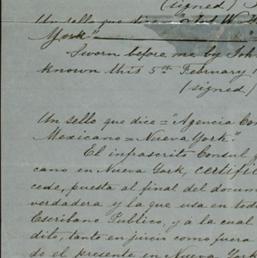 (signed)
Un sello que dice = 
York" =
Sworn before me by Joh
known this 5th February 1
(signed)
Un sello que dice = "Agencia Con
Mexicano = Nueva York".
El infrascrito Consul
cano en Nueva York, certific
cede, puesta al final del docum
verdadera y la que usa en todo
Escribano Publico, y a la cual
dito, tanto en juicio como fuera
do el presente en Nueva York